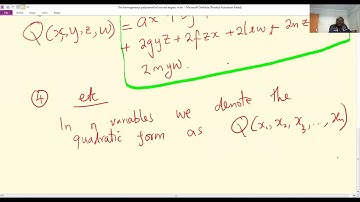 The homogeneous polynomial of second degree in an - Microsoft OneNote (Product Activation Failed)
Q(x,y,z,w) =
+ 2gyz + 2fzx + 2lxw + 2nz
2myw.
④ etc
In n variables we denote the
quadratic form as Q(x₁, x₂, x₃, ..., xₙ)